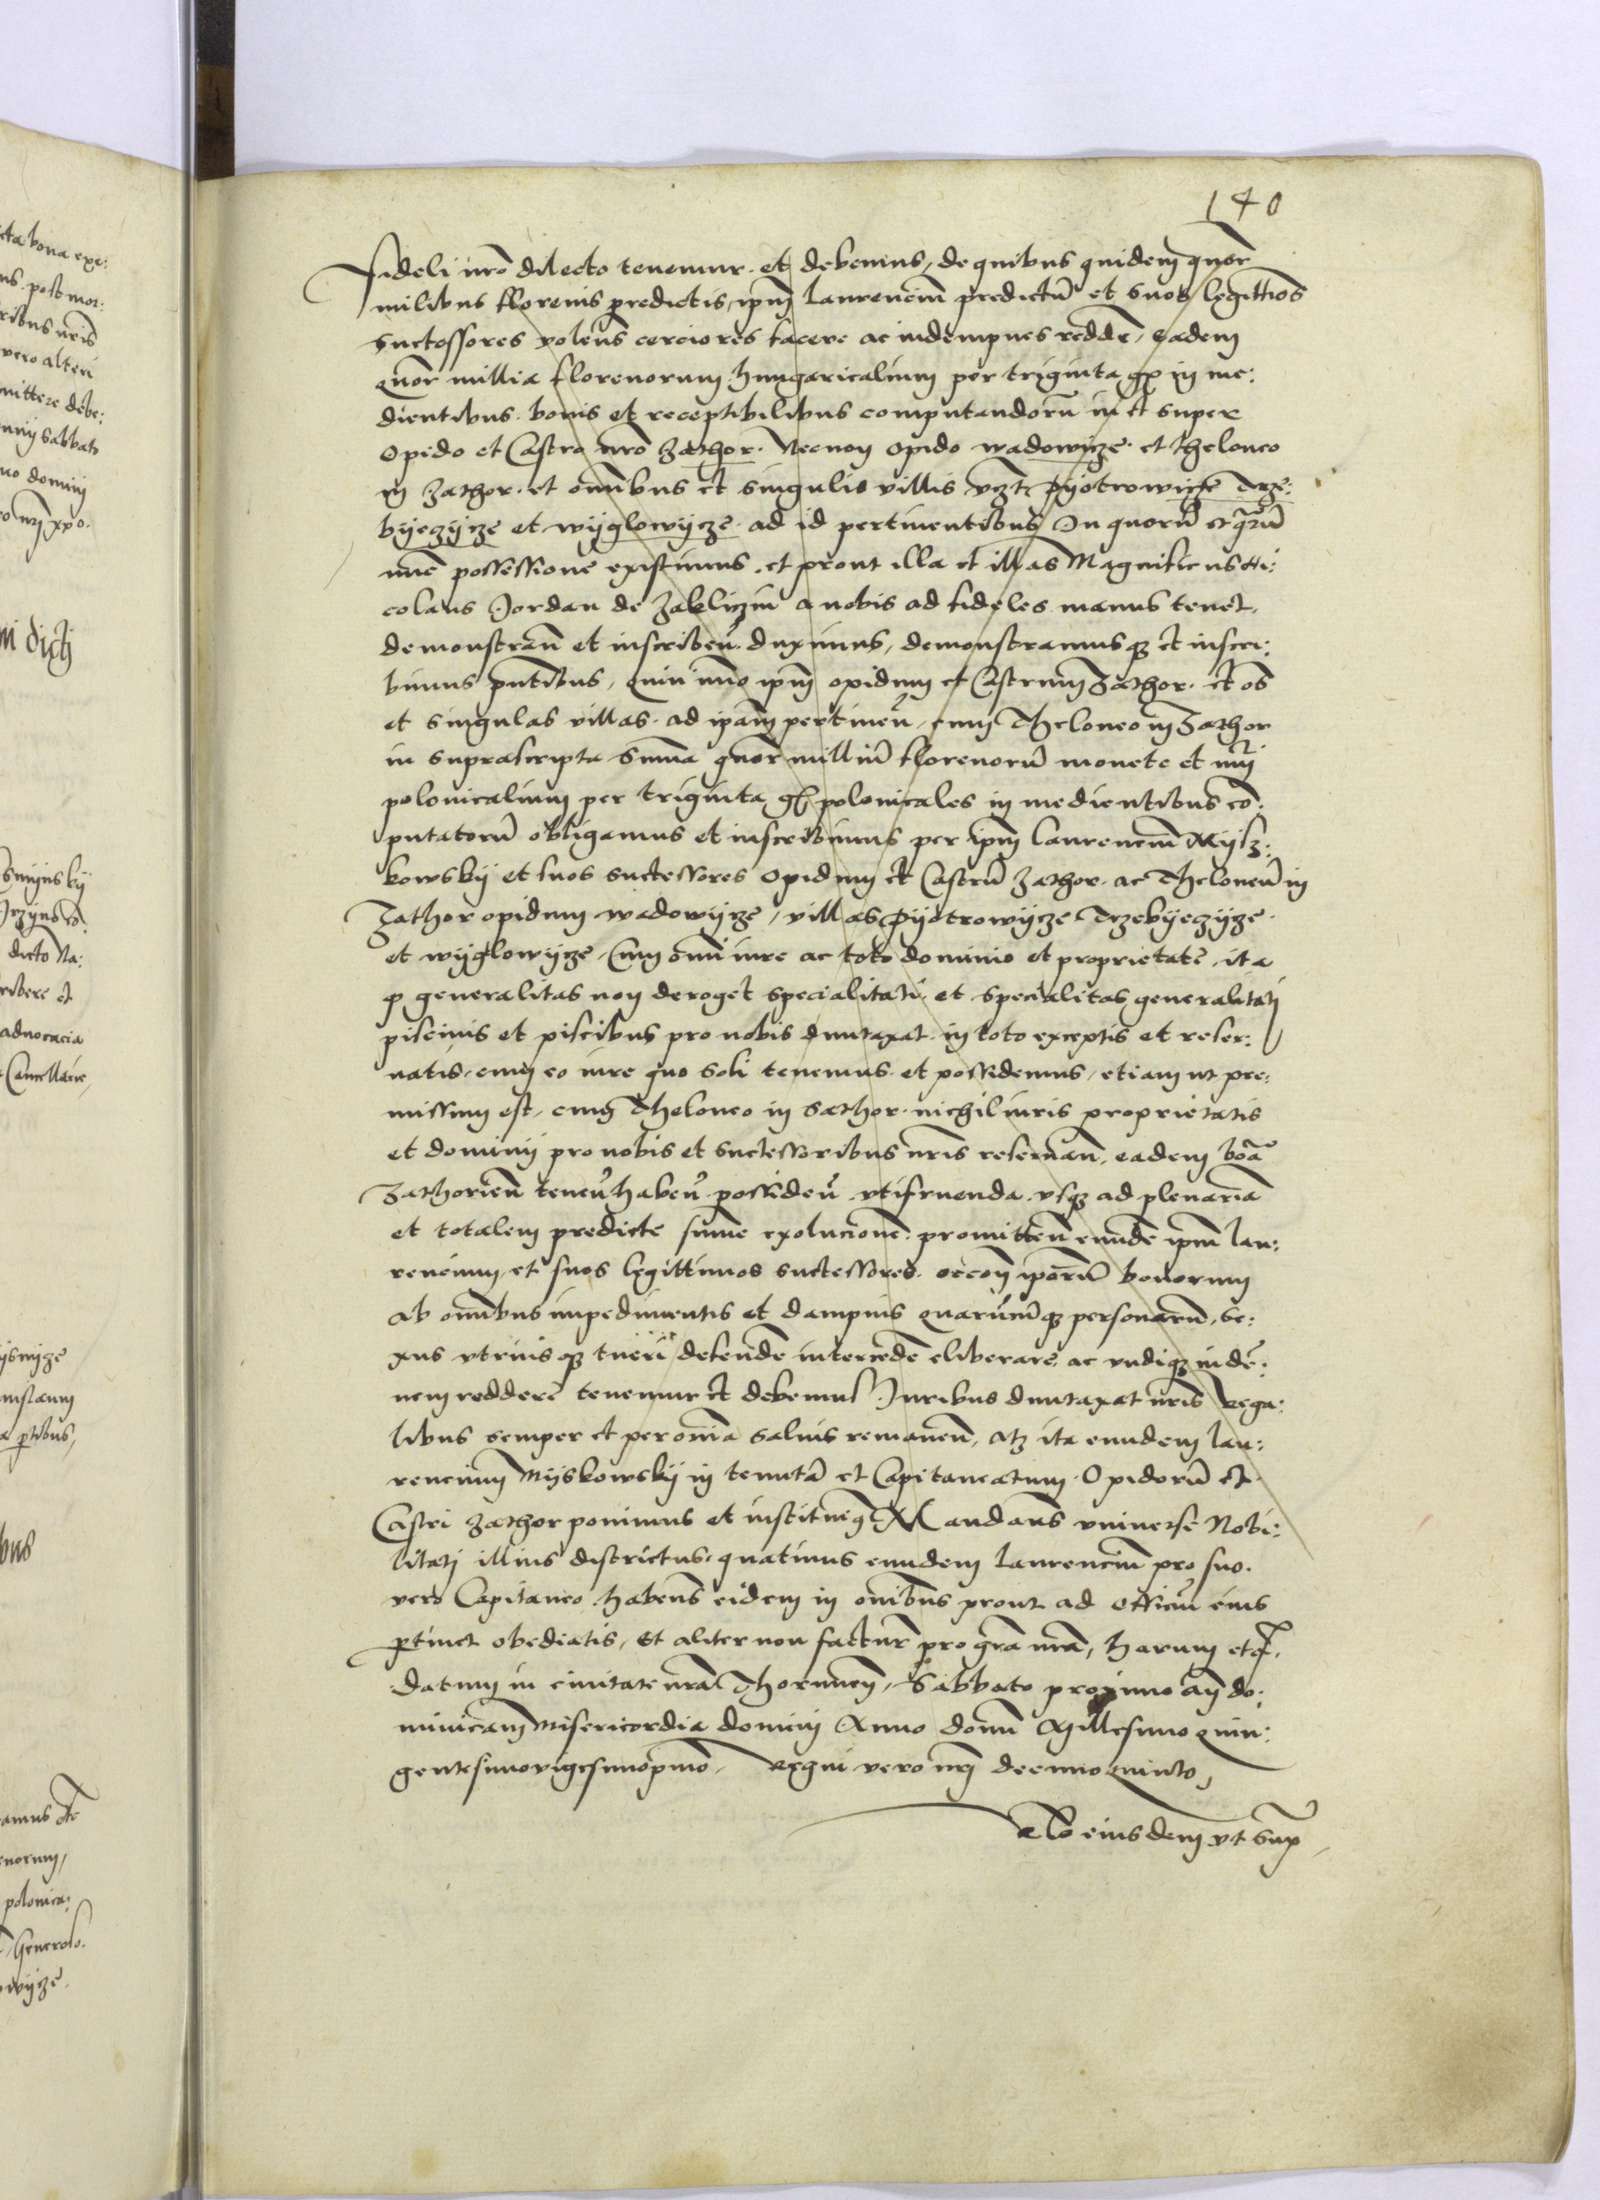 140
fideli nrō dilecto tenemur et debemus, de quibus quidem quor̄
milibus florenis predictis, ipm̄ laurenciū predictū et suos legittīos
successores volens cerciores facere ac indempnes reddē, eadem
quor̄ millia florenorum hungaricalium per triginta gr̄ in me:
dientibus bonis et receptibilibus computandorū in et super
opido et Castro nrō Zathor. Necnon opido wadowijcze et theloneo
in Zathor et om̄ibus et singulis villis vz̄t Pyotrowicze Trze:
byezijcze et wijglowijcze ad id pertinentibus In quorū et q̄rū
nūc possessione existimus, et prout illa et illas Magnificus Ni:
colaus Jordan de Zakliczin a nobis ad fideles manus tenet,
demonstran̄ et inscriben̄ duximus, demonstramusqȝ et inscri:
bimus pn̄tibus, quin īmo ipm̄ opidum et Castrum Zathor et om̄s
et singulas villas ad ipām pertinen̄, cum Theloneo in Zathor
in suprascripta sum̄a quor̄ milliū florenorū monete et nūi
polonicalium per triginta gr̄ polonicales in medientibus cō:
putatorū obligamus et inscribimus per ipm̄ laurenciū Mijsz:
kowskij et suos successores Opidum et Castrū Zathor ac Theloneū in
Zathor opidum wadowijcze, villas Pyotrowijcze Trzebyezijcze
et wijglowijcze, Cum om̄i iure ac toto dominio et proprietate, ita
qȝ generalitas non deroget specialitati et specialitas generalitati
piscinis et piscibus pro nobis dumtaxat in toto exceptis et reser:
uatis, cum eo iure quo soli tenemus et possidemus, etiam ut pre:
missum est, cum Theloneo in Sathor nichil iuris proprietatis
et dominij pro nobis et successoribus nr̄is reseruan̄, eadem bōa
Zathorien̄ tenen̄ haben̄ possiden̄ vtifruenda vsqȝ ad plenariā
et totalem predicte sum̄e exolucionē promitten̄ eundē ipm̄ lau:
rencium et suos legittimos successores occōn ipōrū bonorum
ab om̄ibus impedimentis et dampnis quarūcūqȝ personarū, se:
xus vtriusqȝ tueri defendē intercedē eliberare ac vndiqȝ indē:
nem reddere tenemur et debemus Juribus dumtaxat nr̄is Rega:
libus semper et per om̄ia saluis remanen̄, Atqȝ ita eundem lau:
rencium Mijskowskij in tenutā et Capitaneatum Opidorū et
Castri Zathor ponimus et instituimȝ Mandans vniuerse Nobi:
litati illius districtus, quatinus eundem laurenciū pro suo
vero Capitaneo habens eidem in om̄ibus prout ad officiū eius
ptinet obediatis, Et aliter non factur̄ pro grā nrā, harum etc.
datum in ciuitate nrā Thorunen̄, Sabbato proximo an̄ do:
minicam Misericordia domini Anno domī Millesimo quin:
gentesimovigesimoprīo, Regni vero nr̄i decimo quinto,
Relō eiusdem vt sup̄